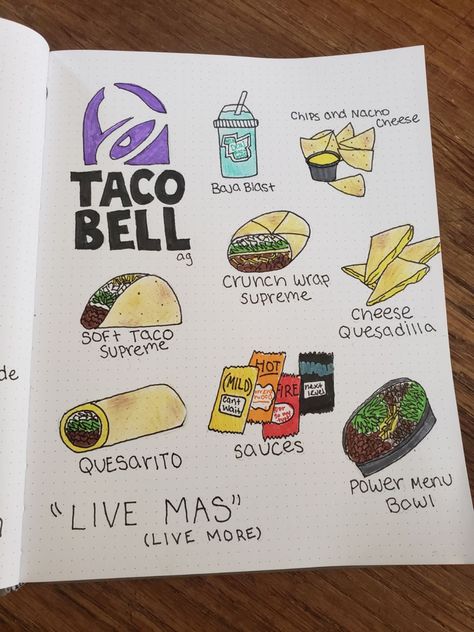 TACO
BELL
ag
Baja Blast
Chips and Nacho
Cheese
Crunch wrap
Supreme
Cheese
Quesadilla
Soft Taco
Supreme
(MILD)
cant
wait
HOT
FIRE
next
level
Sauces
Quesarito
Power Menu
Bowl
"LIVE MAS"
(LIVE MORE)
de